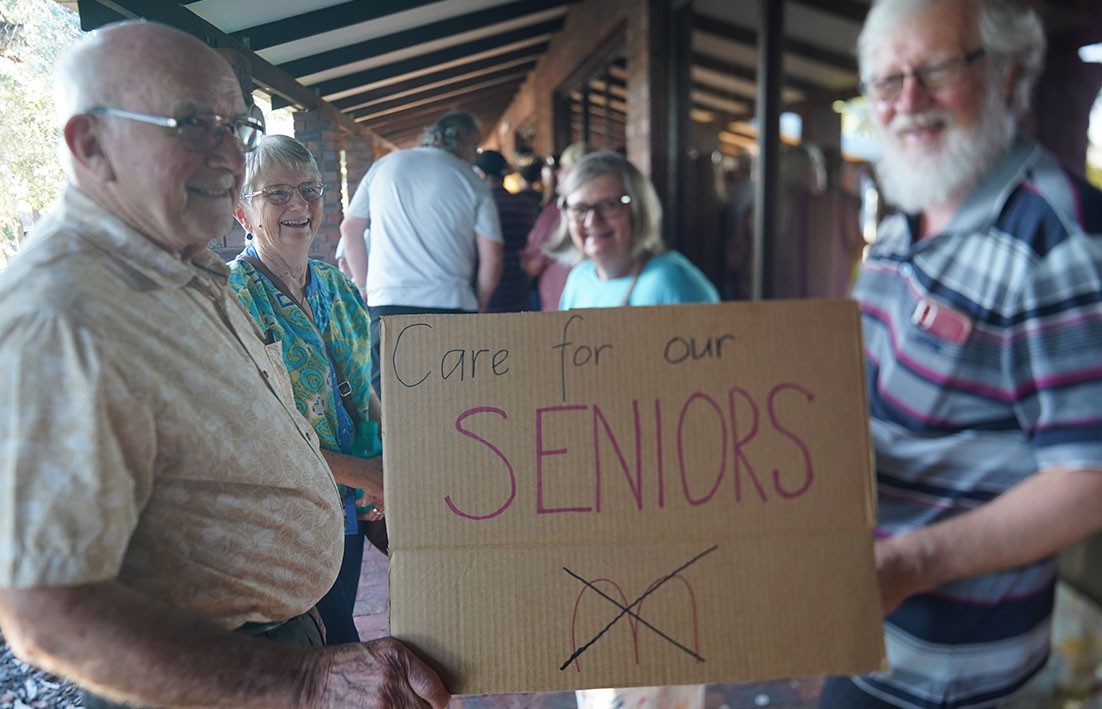 Care for our
SENIORS